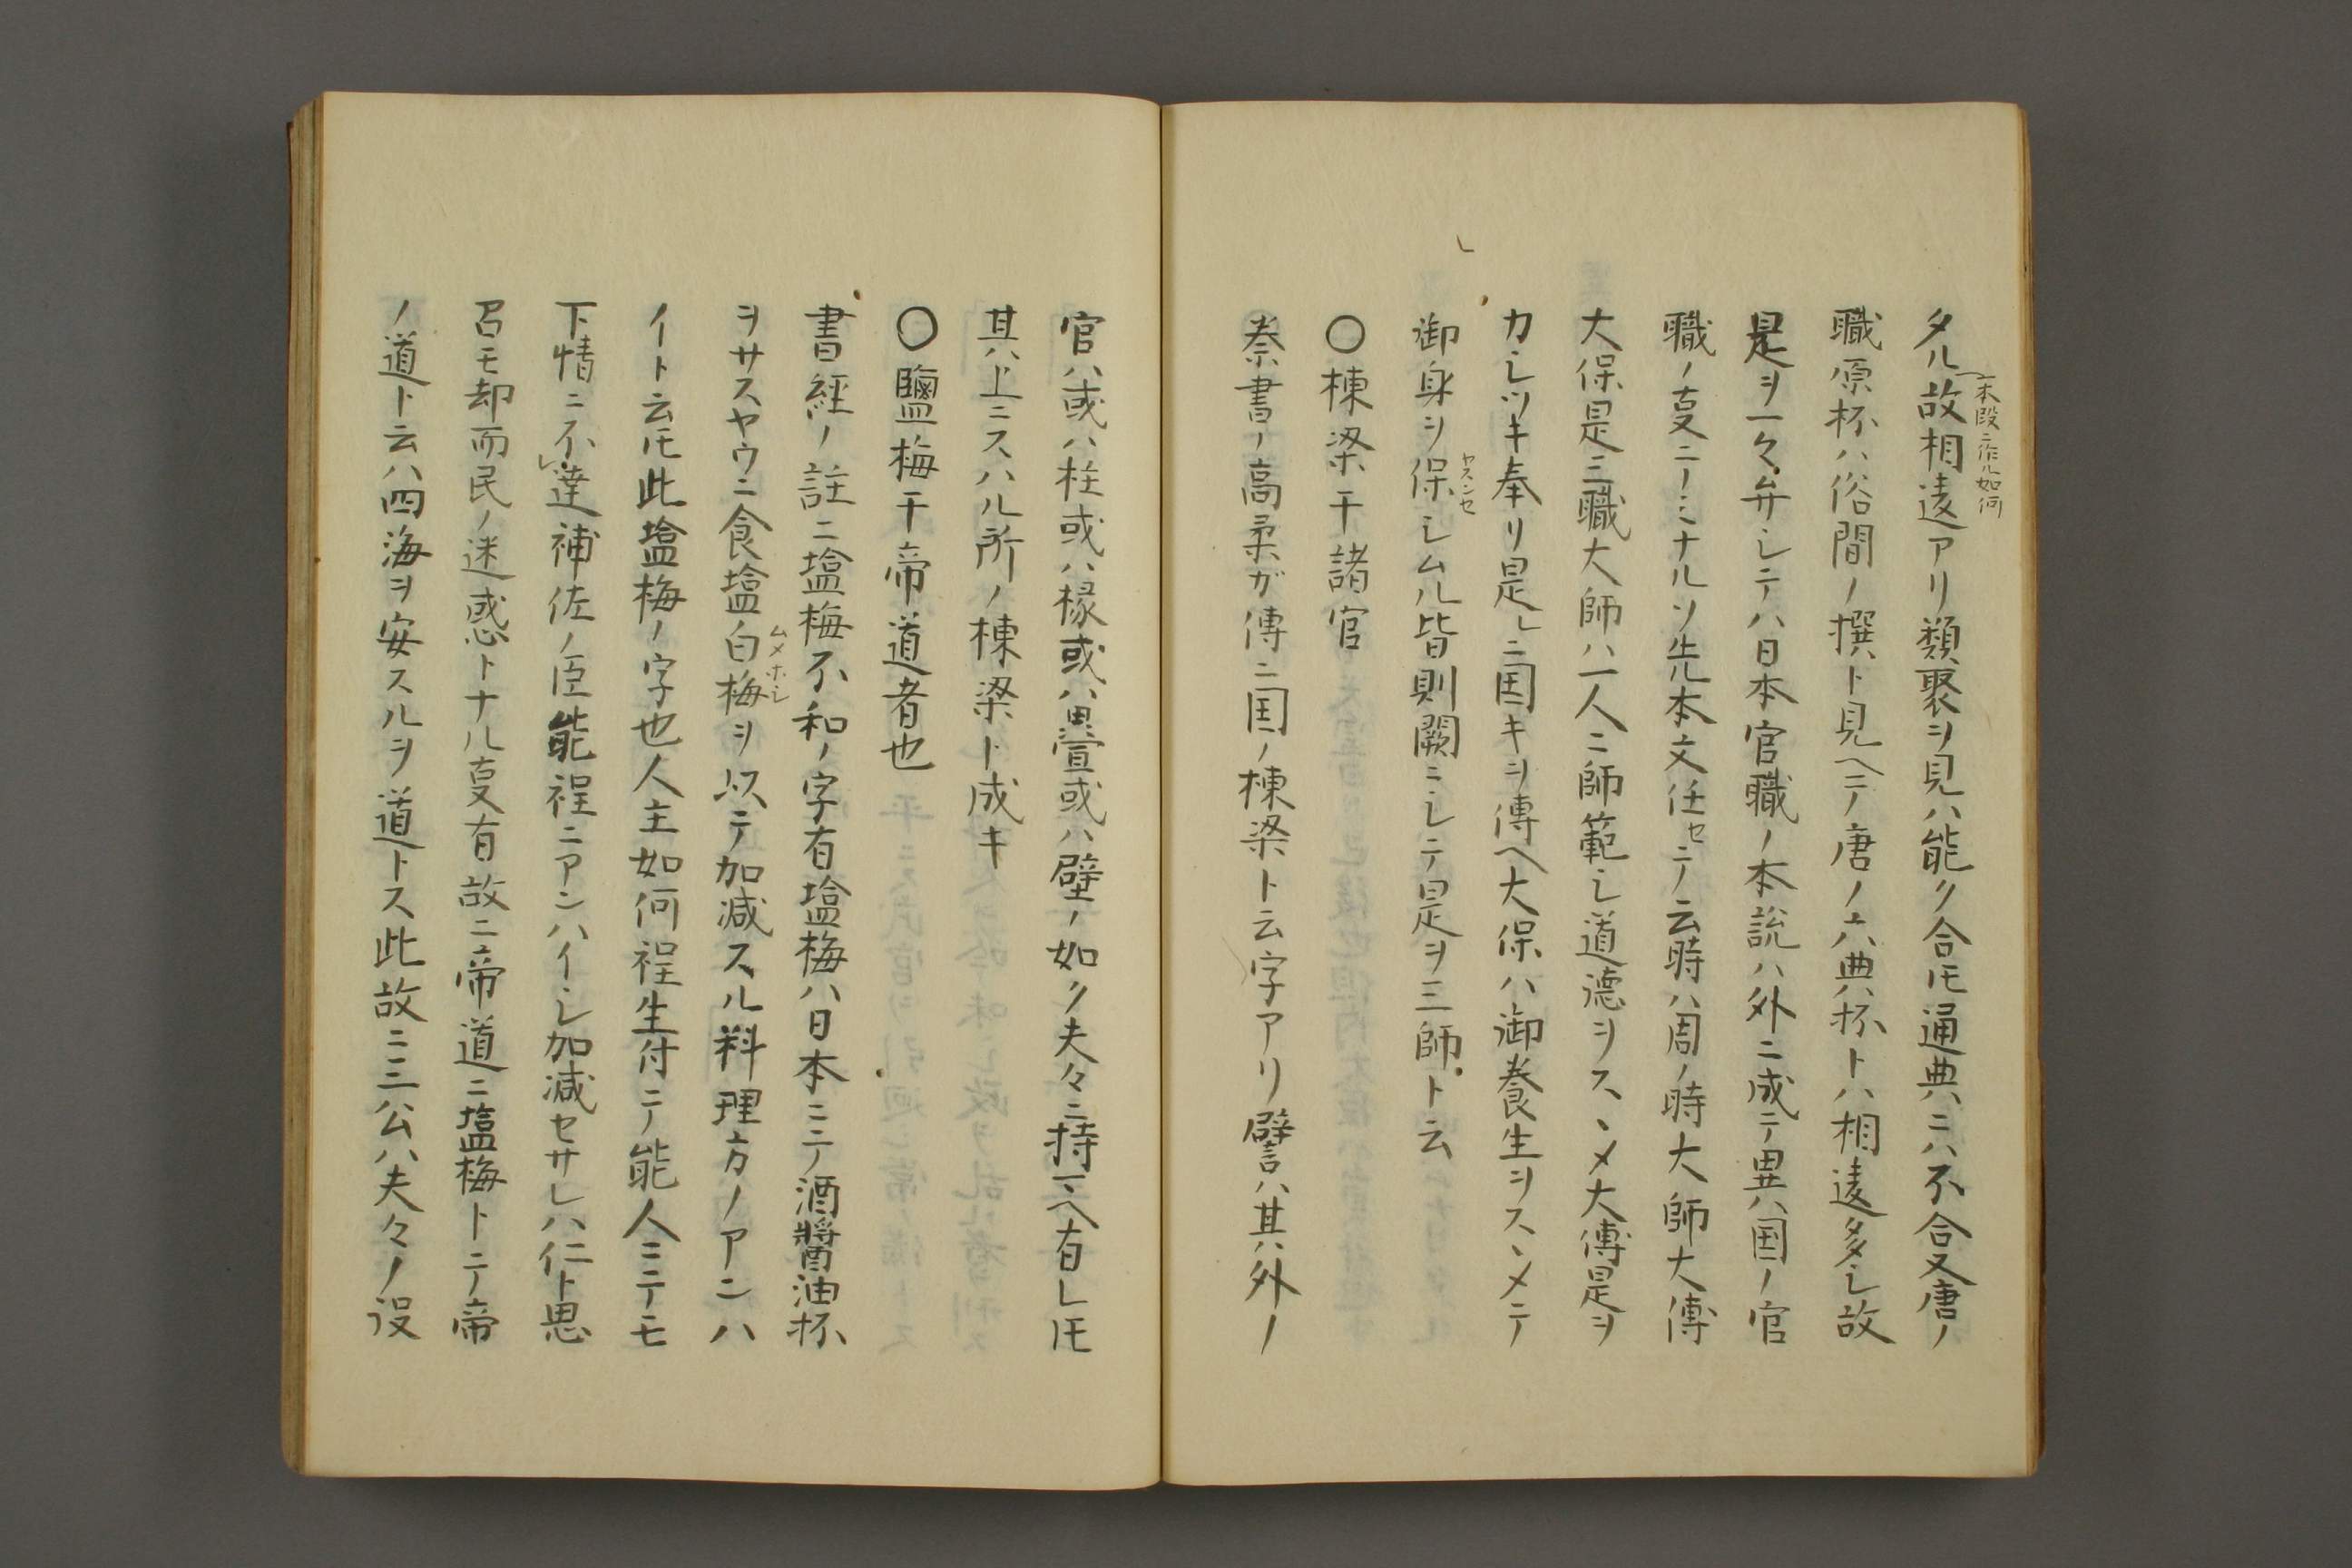 タル故相違アリ類聚ヲ見ハ能ク合𪜈通典ニハ不合又唐ノ
一本段ニ作ル如何
職原杯ハ俗間ノ撰ト見ヘテ唐ノ六典杯トハ相違多シ故
是ヲ一々弁シテハ日本官職ノ本説ハ外ニ成テ異国ノ官
職ノ叓ニノミナルソ先本文任セテ云時ハ周ノ時大師大傅
大保是三職大師ハ一人ニ師範シ道德ヲスヽメ大傅是ヲ
カシツキ奉リ是ニ国キヲ傳ヘ大保ハ御養生ヲスヽメテ
御身ヲ保シムル皆則闕ニシテ是ヲ三師ト云
ヤスンセ
〇棟梁干諸官
秦書ノ高柔ガ傳ニ国ノ棟梁ト云字アリ譬ハ其外ノ
官ハ或ハ柱或ハ椽或ハ甍或ハ壁ノ如ク夫々ニ持マヘ有レ𪜈
其上ニスハル所ノ棟梁ト成キ
〇鹽梅干帝道者也
書經ノ註ニ塩梅不和ノ字有塩梅ハ日本ニテ酒醬油杯
ヲサスヤウニ食塩白梅ヲ以テ加減スル料理方ノアンハ
ムメホシ
イト云𪜈此塩梅ノ字也人主如何程生付テ能人ニテモ
下情ニ不達補佐ノ臣能程ニアンハイシ加減セサレハ仁ト思
召モ却而民ノ迷惑トナル叓有故ニ帝道ニ塩梅トテ帝
ノ道ト云ハ四海ヲ安スルヲ道トス此故ニ三公ハ夫々ノ役